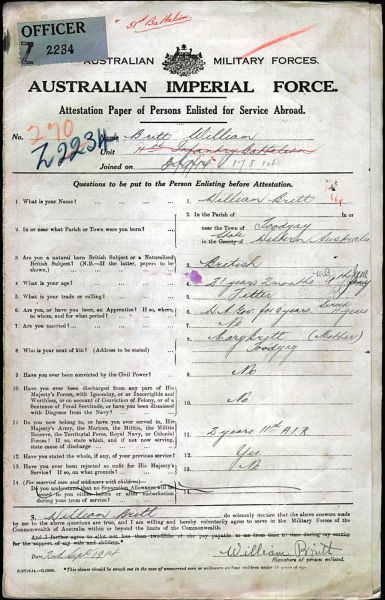 OFFICER
Z 2234
51st Battalion
AUSTRALIAN MILITARY FORCES.
AUSTRALIAN IMPERIAL FORCE.
Attestation Paper of Persons Enlisted for Service Abroad.
No. 270 Name Britt William
Z2234 Unit 11th Infantry Battalion
Joined on 17.8.14
Questions to be put to the Person Enlisting before Attestation.
1 What is your Name? 1. William Britt
2. In or near what Parish or Town were you born? 2. In the Parish of in or
near the Town of Toodyay
in the County of State Western Australia
3. Are you a natural born British Subject or a Naturalized
British Subject? (N.B.—If the latter, papers to be
shown.) 3. British
4. What is your age? 4. 21 years 2 months
5. What is your trade or calling? 5. Fitter
6. Are you, or have you been, an Apprentice? If so, where,
to whom, and for what period? 6. for 6 years. Served 4 years
7. Are you married? 7. No
8. Who is your next of kin? (Address to be stated) 8. Mary Britt (Mother)
Toodyay
9. Have you ever been convicted by the Civil Power? 9. No
10. Have you ever been discharged from any part of His
Majesty's Forces, with Ignominy, or as Incorrigible and
Worthless, or on account of Conviction of Felony, or of a
Sentence of Penal Servitude, or have you been dismissed
with Disgrace from the Navy? 10. No
11. Do you now belong to, or have you ever served in, His
Majesty's Army, the Marines, the Militia, the Militia
Reserve, the Territorial Force, Royal Navy, or Colonial
Forces? If so, state which, and if not now serving,
state cause of discharge 11. 3 years 11th A.I.R.
12. Have you stated the whole, if any, of your previous service? 12. Yes
13. Have you ever been rejected as unfit for His Majesty's
Service? If so, on what grounds? 13. No
14. (For married men and widowers with children)
Do you understand that no Separation Allowance will be
issued to you either before or after embarkation
during your term of service? 14.
I, William Britt do solemnly declare that the above answers made
by me to the above questions are true, and I am willing and hereby voluntarily agree to serve in the Military Forces of the
Commonwealth of Australia within or beyond the limits of the Commonwealth.
And I further agree to allot not less than two-fifths of the pay payable to me from time to time during my service for the
support of my wife and children.
Date 2nd Sept 1914 William Britt
Signature of person enlisted.
*This clause should be struck out in the case of unmarried men or widowers without children under 18 years of age.